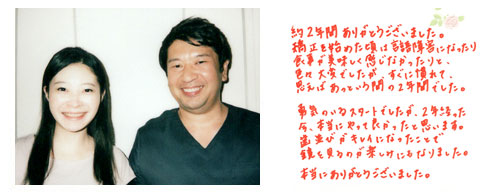 約2年間ありがとうございました。
矯正を始めた頃は言語障害になったり
食事が美味しく感じなかったりと、
色々大変でしたが、すぐに慣れて、
思えばあっという間の2年間でした。
勇気のいるスタートでしたが、2年経った
今、本当にやって良かったと思います。
歯並びがキレイになったことで
鏡を見るのが楽しみにもなりました。
本当にありがとうございました。